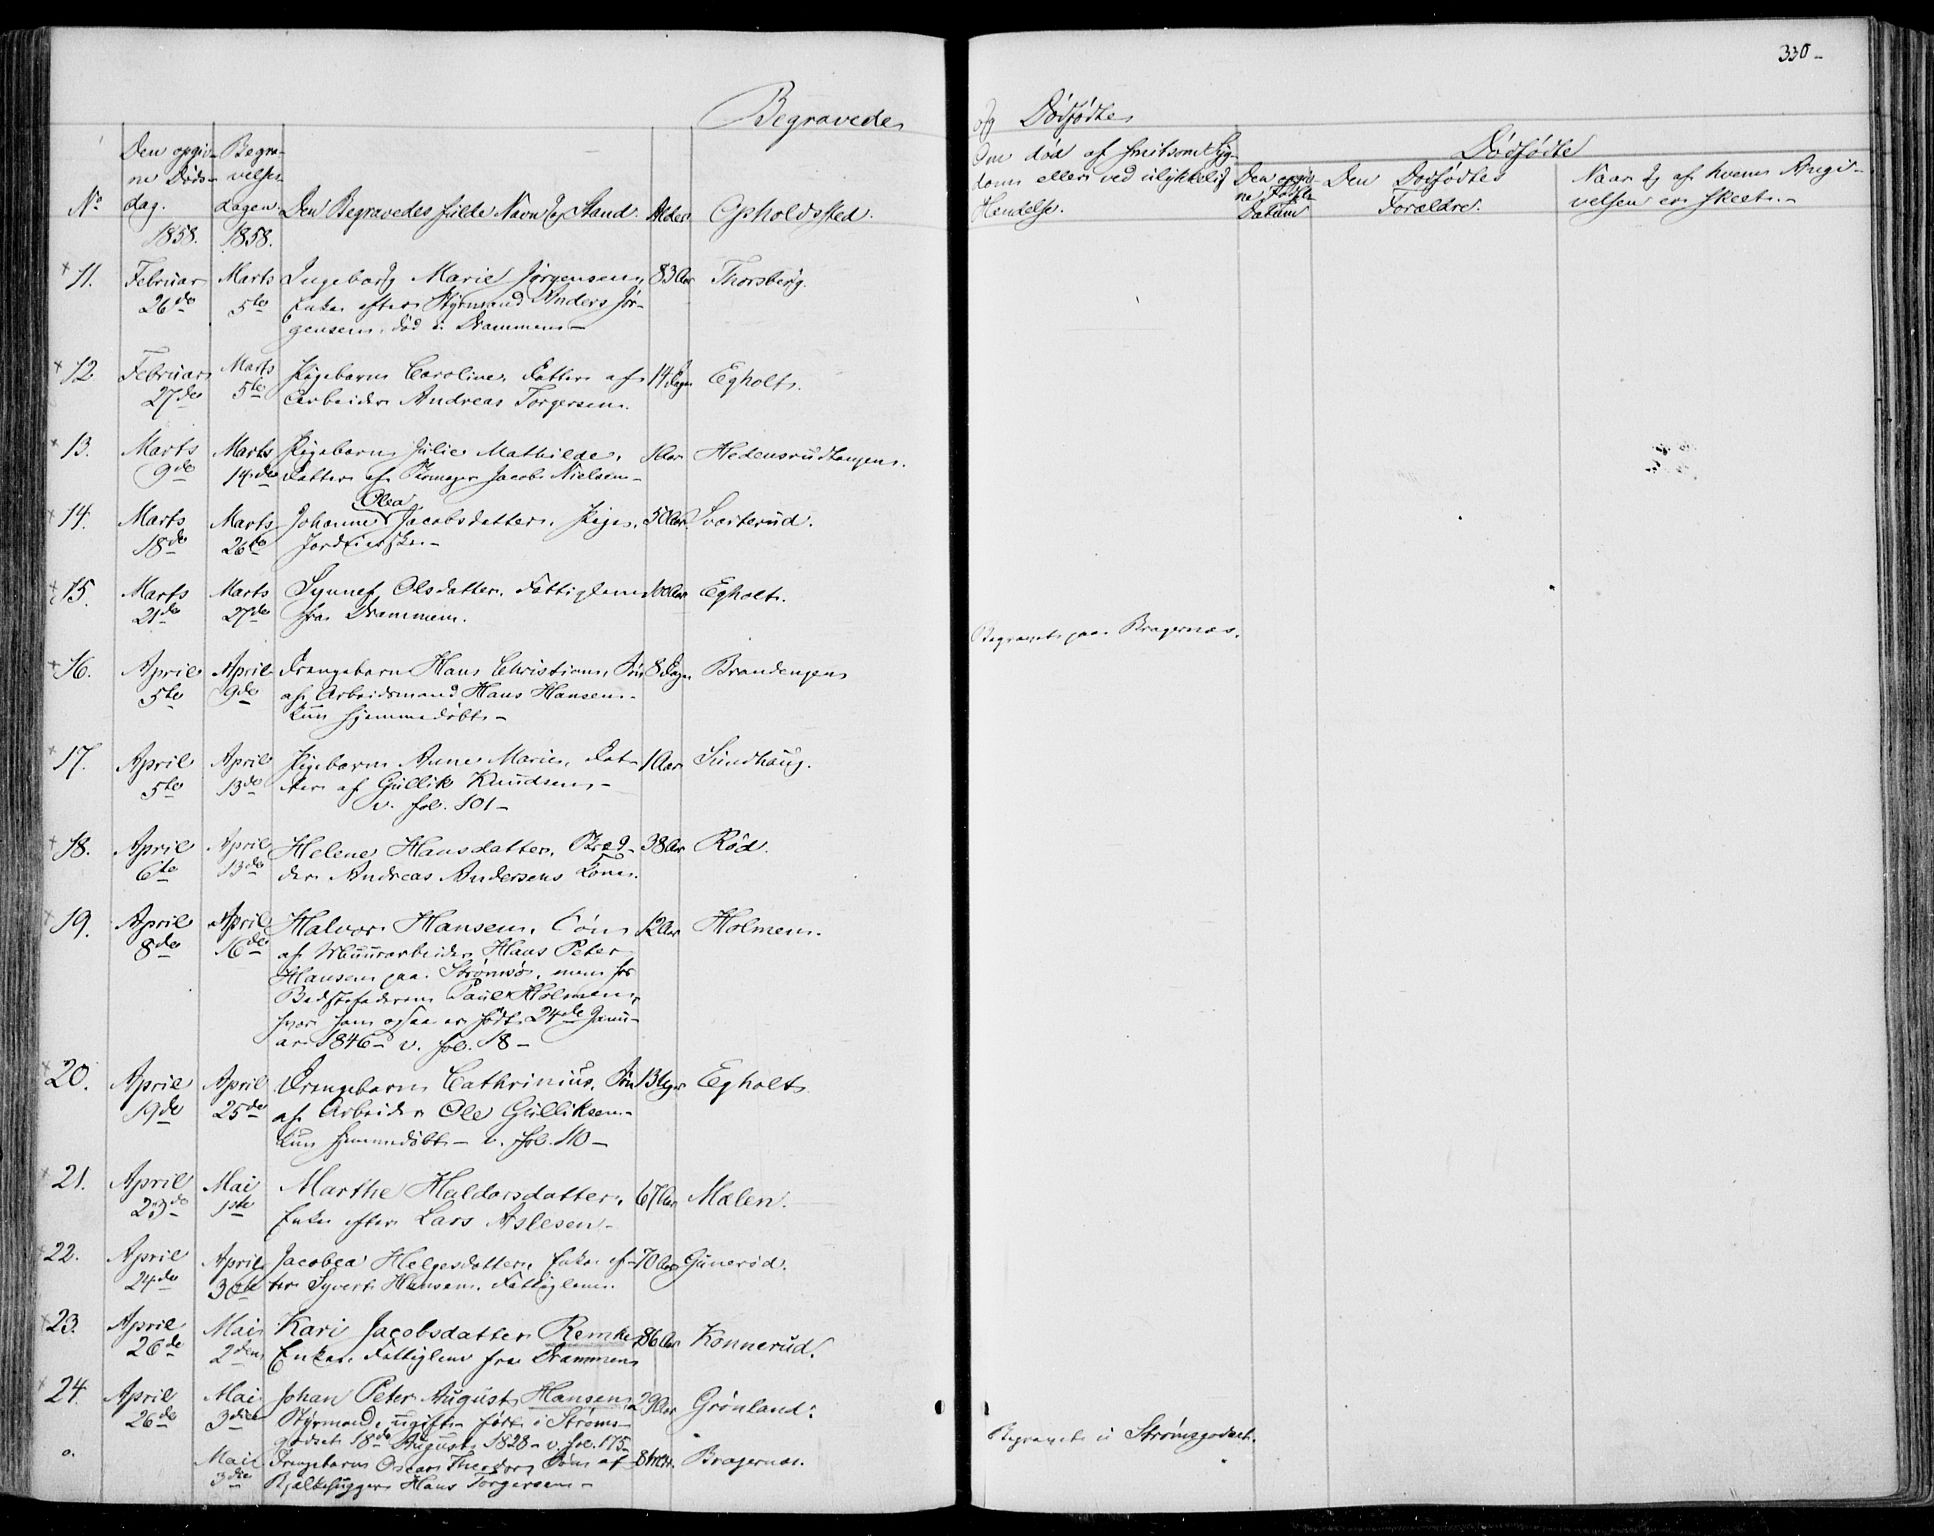 330-
Begravede og Dødfødte
No
Den opgivne Dødsdag.
Begravelsesdagen.
Den Begravedes fulde Navn og Stand.
Alder
Opholdssted.
Om død af smitsom Sygdom eller ved ulykkelig Hendelse.
Dødfødte
Den opgivne Fødsels Datum
Den Dødfødtes Forældre.
Naar og af hvem Angivelsen er skeet.-
1858. 1858.
11. Februar Marts Ingeborg Marie Jørgensen, 83 Aar Thorsberg.
26de 5te Enke efter Styrmand Anders Jør-
gensen, død i Drammen-
12 Februar Marts Pigebarn Caroline, Datter af 14 Dage Egholt.
27de 5te Arbeider Andreas Torgersen.
13. Marts Marts Pigebarn Julie Mathilde, 1 Aar Hedensrudtangen.
9de 14de Datter af Jacob Nielsen-
Olea
14. Marts Marts Johanne Jacobsdatter, Pige, 50 Aar Svarterud.
18de 26de
15. Marts Marts Synnef Olsdatter, Fattiglem Aar Egholt.
21de 27de fra Drammen.
Begravet paa Bragernæs.
16. April April Drengebarn Hans Christian, Søn 8 Dage Brandengen
5te 9de af Arbeidsmand Hans Hansen-
kun hjemmedøbt-
17. April April Pigebarn Anne Marie, Dat- 1 Aar Sundhaug.
5te 13de ter af Gullik Knudsen-
v. fol. 101-
18. April April Helene Hansdatter, 38 Aar Rød.
6te 13de Andreas Andersens Kone.
19. April April Halvor Hansen, Søn 12 Aar Holmen.
8de 16de af Muurarbeider Hans Peter
Hansen paa Strømsø, men hos
Bedstefaderen Paul Holmen,
hvor han ogsaa er født 24de Janu-
ar 1846- v. fol. 18-
20. April April Drengebarn Cathrinius, Søn 13 Uger Egholt
19de 25de af Arbeider Ole Gulliksen-
kun hjemmedøbt- v. fol. 110-
21. April Mai Marthe Haldorsdatter, 67 Aar Mælen.
23de 1ste Enke efter Lars Aslesen-
22. April April Jacobea Helgesdatter, Enke ef- 70 Aar Gunerød.
24de 30te ter Syvert Hansen, Fattiglem.
23. April Mai Kari Jacobsdatter Remke 86 Aar Konnerud.
26de 2den Enke, Fattiglem fra Drammen
24. April Mai Johan Peter August Hansen, 29 Aar Grønland.
26de 3die Styrmand, ugift, født i Strøms-
godset 18de August 1828- v. fol. 175-
Begravet i Strømsgodset.
o. Mai Drengebarn Oscar Theodor, Søn af 8 Bragernæs.
3die Bjælkehugger Hans Torgersen-